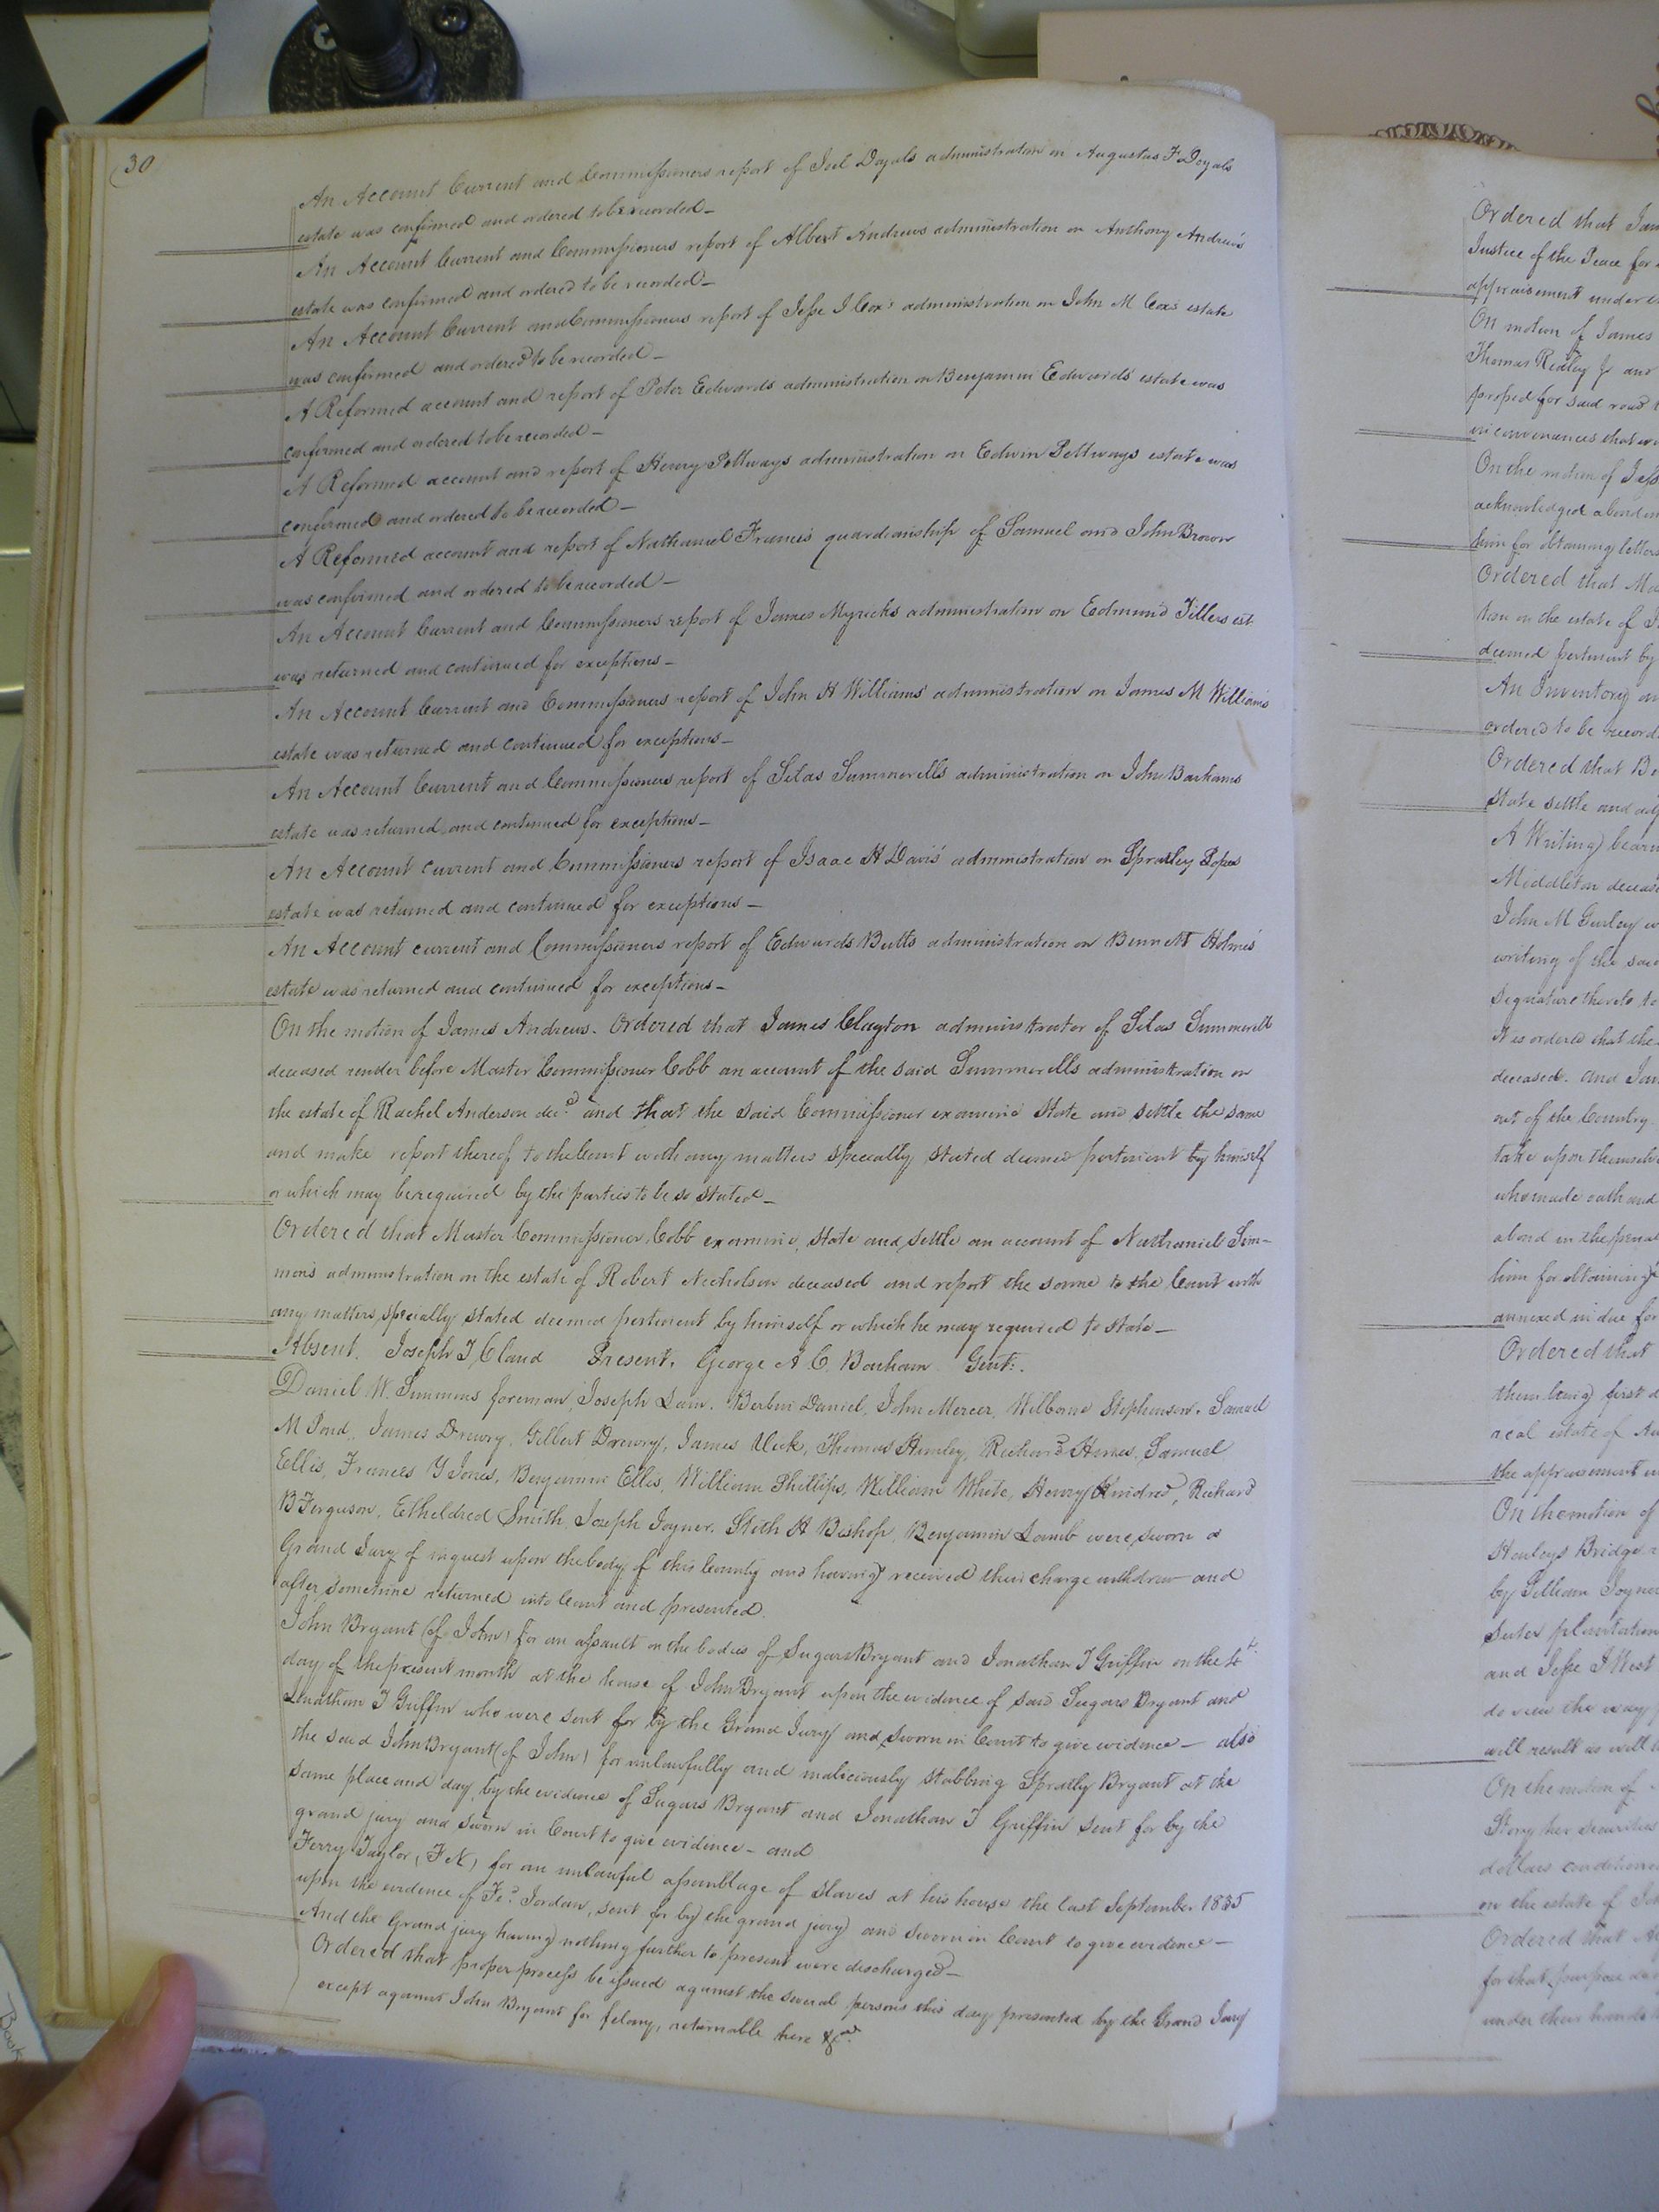 30
An Account Current and Commissioners report of Joel Doyals administration on Augustus F Doyals
estate was confirmed and ordered to be recorded –
An Account Current and Commissioners report of Albert Andrews administration on Anthony Andrews
estate was confirmed and ordered to be recorded –
An Account Current and Commissioners report of Jesse J Cox's administration on John M Coxs estate
was confirmed and ordered to be recorded –
A Reformed account and report of Peter Edwards administration on Benjamin Edwards' estate was
confirmed and ordered to be recorded –
A Reformed account and report of Henry Pettways administration on Edwin Pettways estate was
confirmed and ordered to be recorded –
A Reformed account and report of Nathaniel Francis guardianship of Samuel and John Brown
was confirmed and ordered to be recorded –
An Account Current and Commissioners report of James Myricks administration on Edmund Tillers est.
was returned and continued for exceptions –
An Account Current and Commissioners report of John H Williams' administration on James M Williams
estate was returned and continued for exceptions –
An Account Current and Commissioners report of Silas Summerells administration on John Barhams
estate was returned and continued for exceptions –
An Account current and Commissioners report of Isaac H Davis' administration on Spratley Popes
estate was returned and continued for exceptions –
An Account current and Commissioners report of Edwards Butts administration on Bennett Holmes'
estate was returned and continued for exceptions –
On the motion of James Andrews. Ordered that James Clayton administrator of Silas Summerell
deceased render before Master Commissioner Cobb an account of the said Summerells administration on
the estate of Rachel Anderson decd. and that the said Commissioner examine State and settle the same
and make report thereof to the Court with any matters specially stated deemed pertinent by himself
or which may be required by the parties to be so stated –
Ordered that Master Commissioner Cobb examine, state and settle an account of Nathaniel Sim-
mons administration on the estate of Robert Nicholson deceased and report the same to the Court with
any matters specially stated deemed pertinent by himself or which he may required to state –
Absent. Joseph T Claud Present. George A C Barham Gent:.
Daniel W. Simmons foreman, Joseph Lain, Berbin Daniel, John Mercer, Wilborne Stephenson, Samuel
M Pond, James Drewry, Gilbert Drewry, James Vick, Thomas Hunley, Richard Hines, Samuel
Ellis, Frances Y Jones, Benjamin Ellis, William Phillips, William White, Henry Kindred, Richard
B Ferguson, Etheldred Smith, Joseph Joyner, Stith H Bishop, Benjamin Lamb were sworn a
Grand Jury of inquest upon the body of this County and having received their charge withdrew and
after sometime returned into Court and presented.
John Bryant (of John) for an assault on the bodies of Sugars Bryant and Jonathan T Griffin on the 4th
day of the present month at the house of John Bryant upon the evidence of said Sugars Bryant and
Jonathan T Griffin who were sent for by the Grand Jury and sworn in Court to give evidence – also
the said John Bryant (of John) for unlawfully and maliciously stabbing Spratly Bryant at the
same place and day, by the evidence of Sugars Bryant and Jonathan T Griffin sent for by the
grand jury and sworn in Court to give evidence – and
Ferry Taylor, (F N) for an unlawful assemblage of slaves at his house the last September 1835
upon the evidence of Jordan, sent for by the grand jury and sworn in Court to give evidence –
And the Grand jury having nothing further to present were discharged –
Ordered that proper process be issued against the several persons this day presented by the Grand Jury
except against John Bryant for felony, returnable here &c.
Ordered that
Justice of the Peace for
appraisement under
On motion of James
Thomas Ridley Jr and
proposed for said road
inconveniences that
On the motion of
acknowledged a bond
him for obtaining letters
Ordered that
tion on the estate of
deemed pertinent by
An Inventory
ordered to be
Ordered that
State settle and
A Writing
Middleton
John M Gurley
writing of the said
signature thereto to
It is ordered that the
deceased. and
out of the Country
take upon
who made oath and
a bond in the
him for obtaining
annexed in due for
Ordered that
them being first
real estate of
the appraisement
On the motion of
Bridge
by
plantation
and Jesse J West
do view the way
will result as well
On the motion of
Story her securities
dollars
on the estate of
Ordered that
for that purpose
under their hands